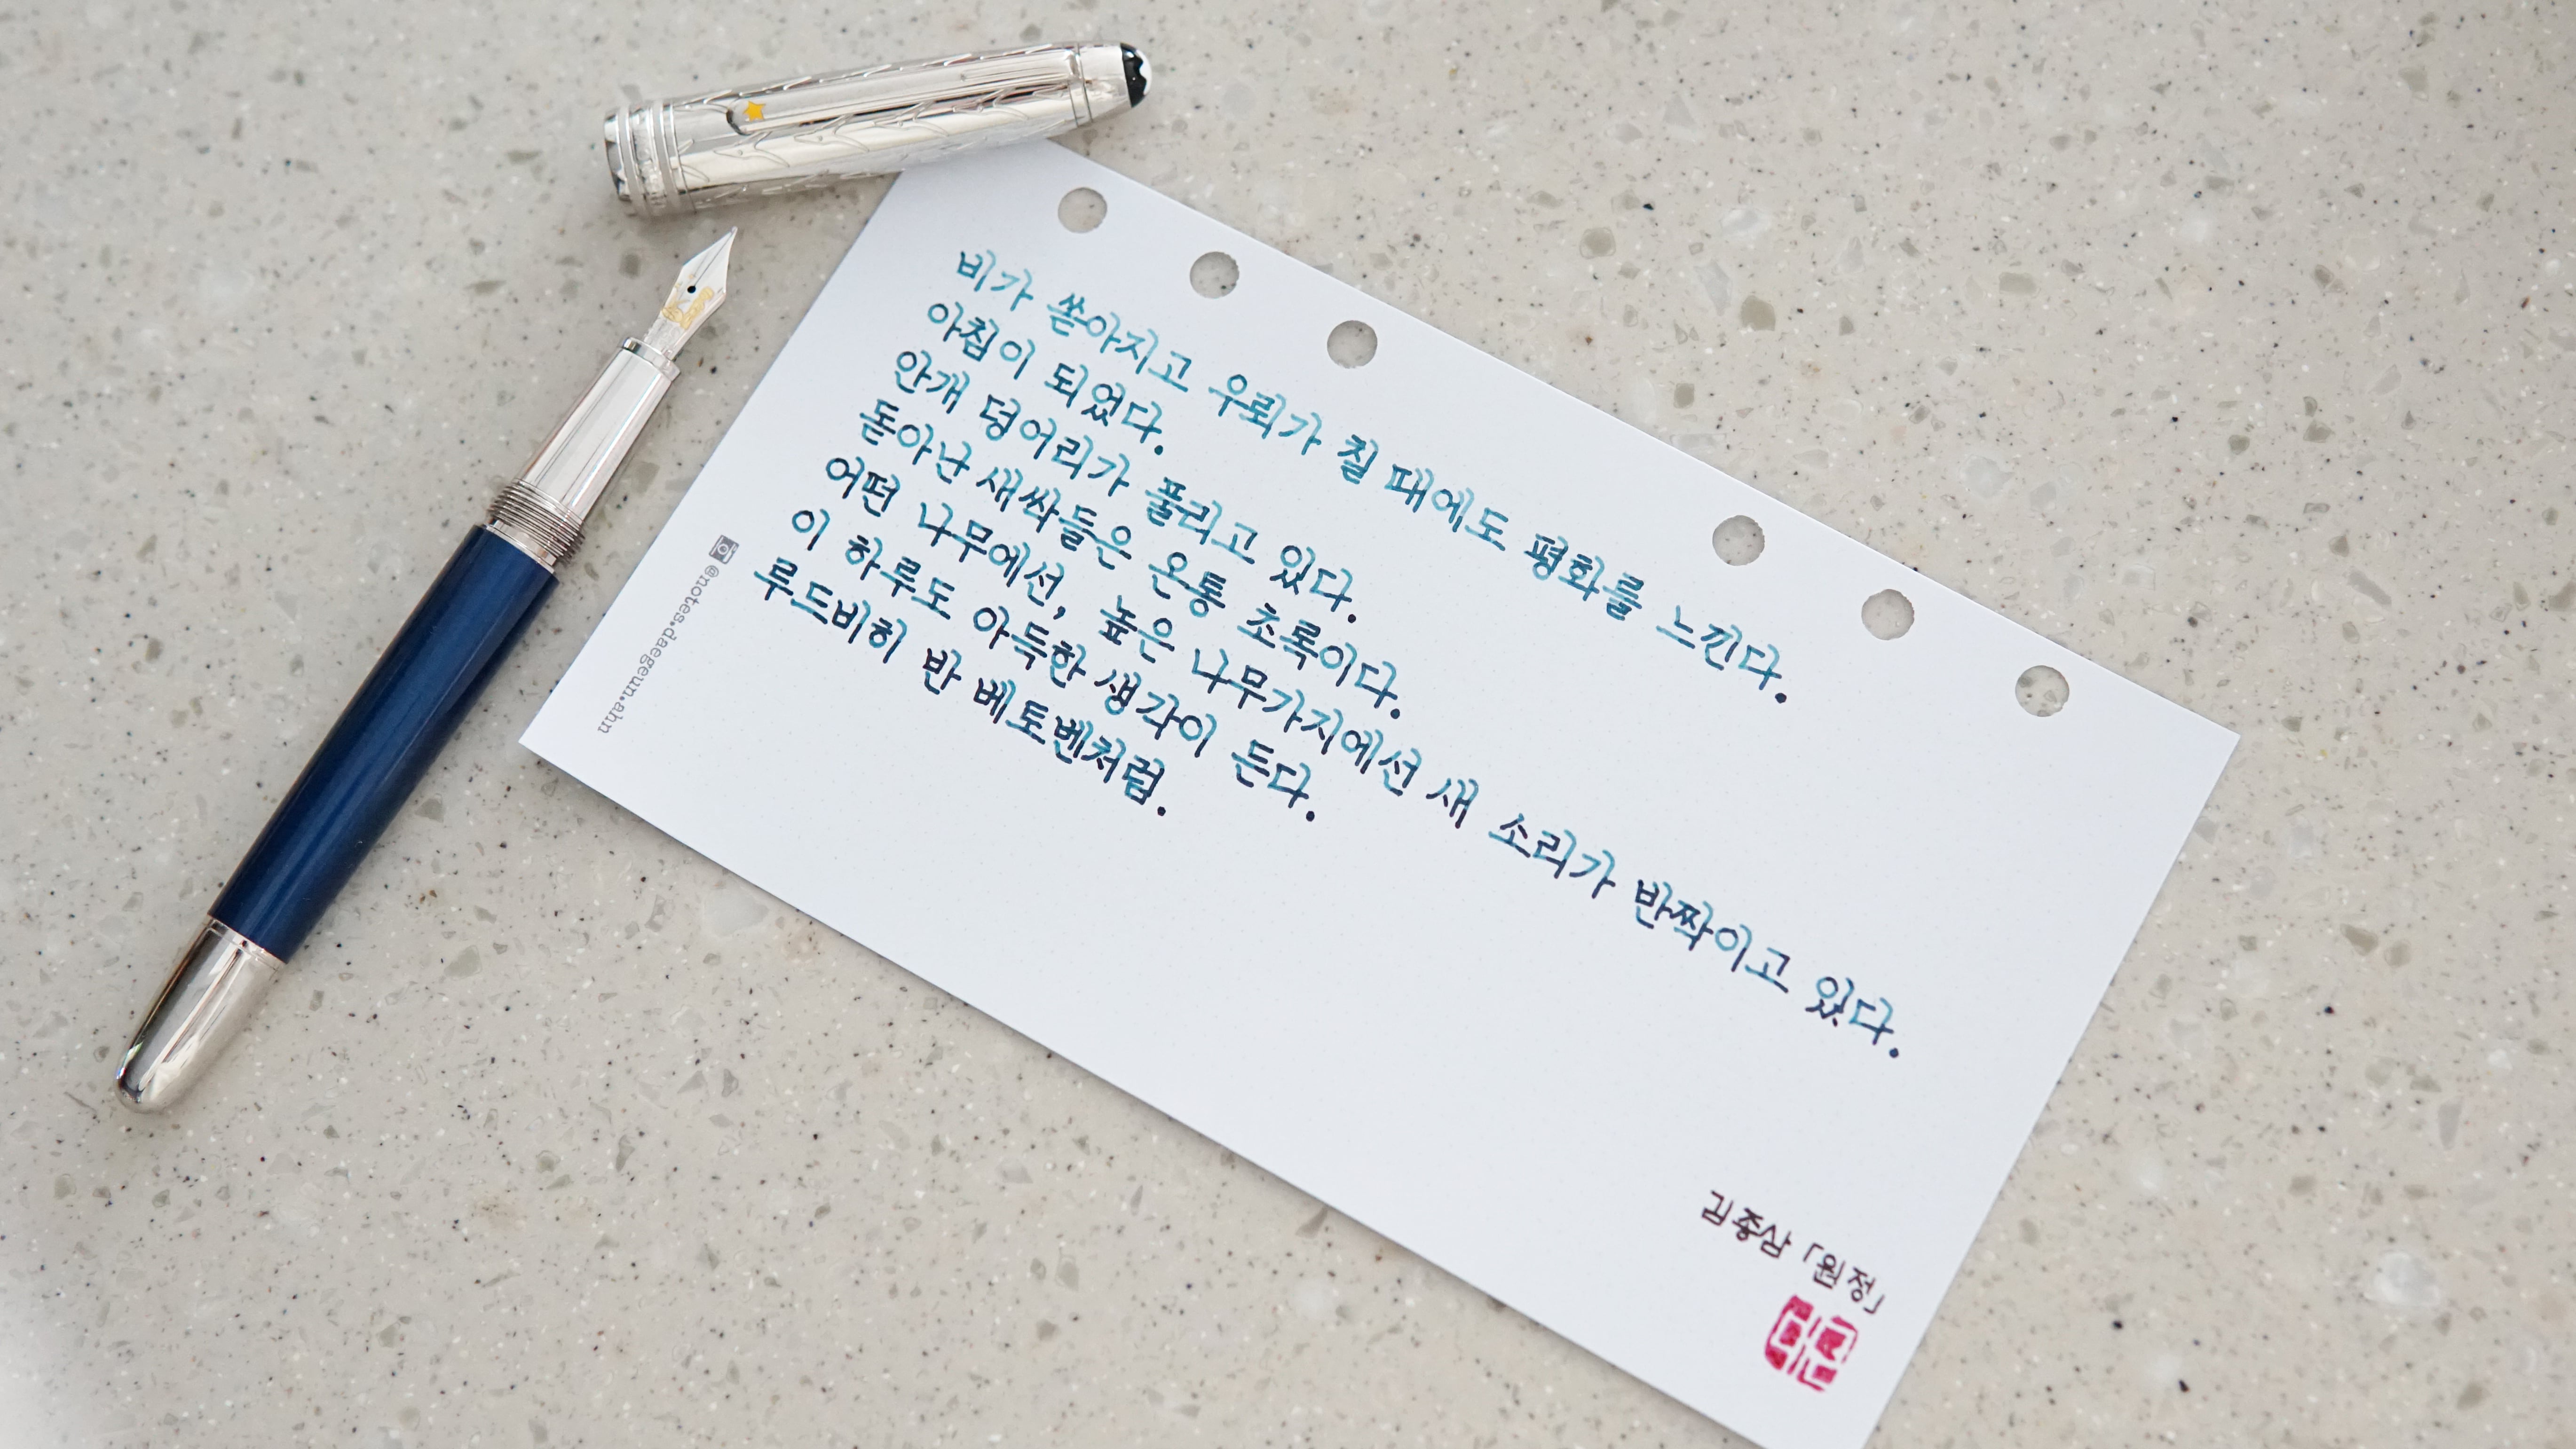 비가 쏟아지고 우뢰가 칠 때에도 평화를 느낀다.
아침이 되었다.
안개 덩어리가 풀리고 있다.
돋아난 새싹들은 온통 초록이다.
어떤 나무에선, 높은 나무가지에선 새 소리가 반짝이고 있다.
이 하루도 아득한 생각이 든다.
루드비히 반 베토벤처럼.
김종삼 「원정」
@notes.daegeun.ahn